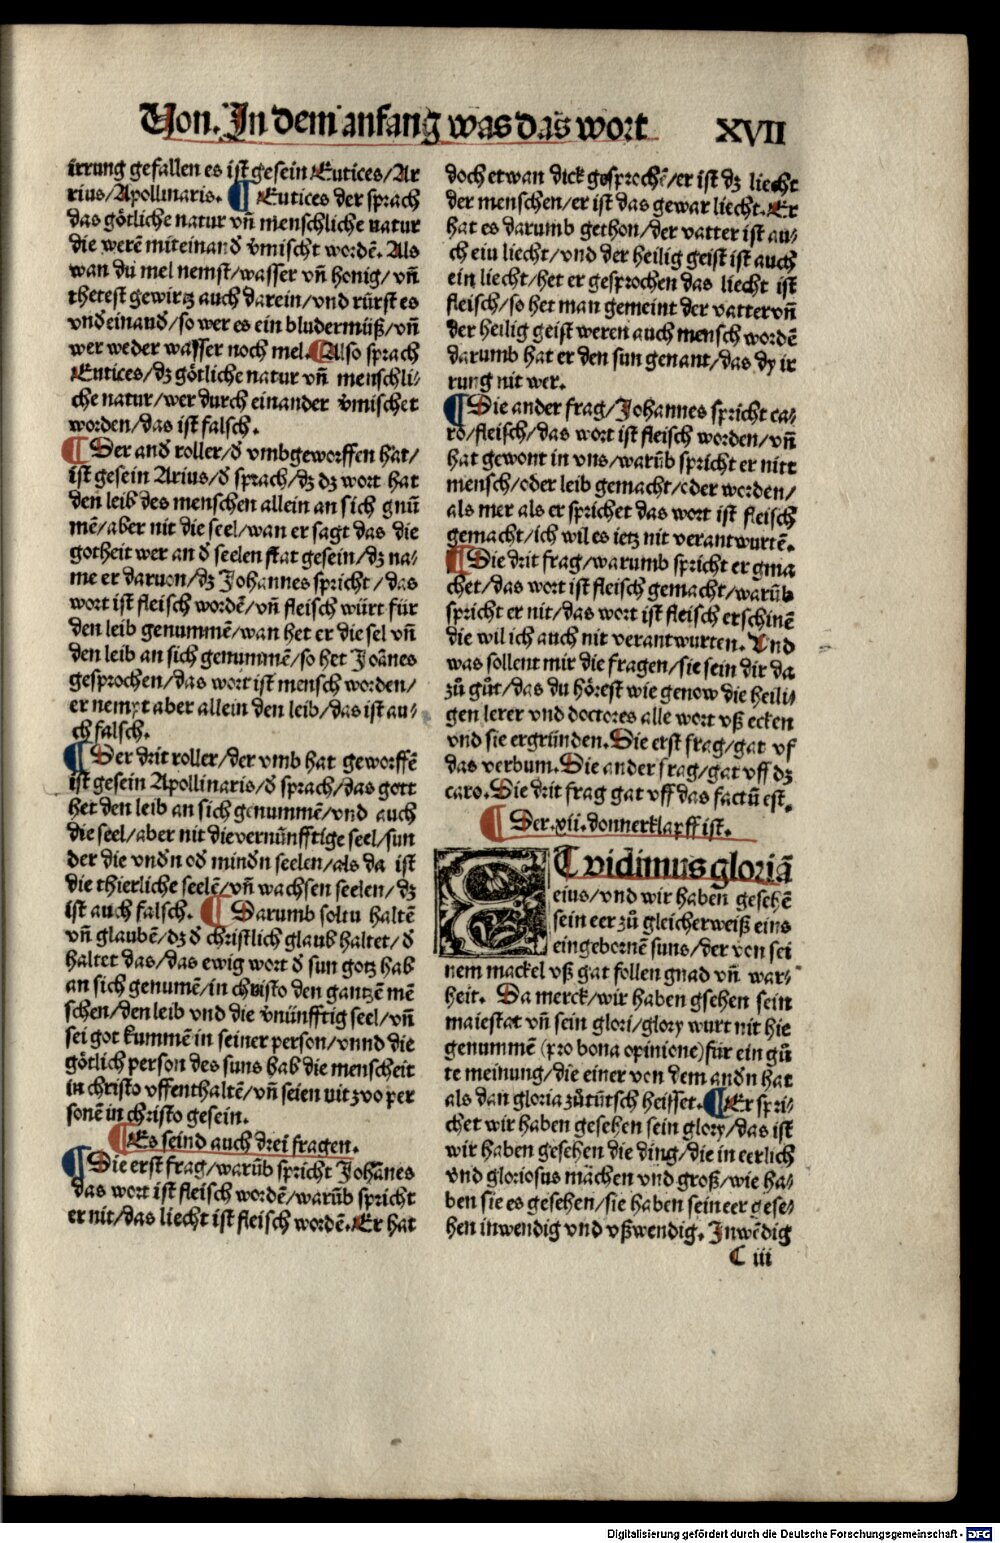 Von. In dem anfang was das wort XVII
irrung gefallen es ist gesein Eutices/Ar
rius/Apollinaris. ¶ Eutices der sprach
das götliche natur vn̄ menschliche natur
die werē miteinand̄ v̄mischt wordē. Als
wan du mel nemst/wasser vn̄ honig/vn̄
thetest gewirtz auch darein/vnd rürst es
vnd̄einand̄/so wer es ein bludermůß/vn̄
wer weder wasser noch mel. ¶ Also sprach
Eutices/dz götliche natur vn̄ menschli⸗
che natur/wer durch einander v̄mischet
worden/das ist falsch.
¶ Der and̄ roller/d̄ vmbgeworffen hat/
ist gesein Arius/d̄ sprach/dz dz wort hat
den leib des menschen allein an sich gnū
mē/aber nit die seel/wan er sagt das die
gotheit wer an d̄ seelen stat gesein/dz na⸗
me er daruon/dz Johannes spricht/das
wort ist fleisch wordē/vn̄ fleisch würt für
den leib genummē/wan het er die sel vn̄
den leib an sich genummē/so het Joānes
gesprochen/das wort ist mensch worden/
er nempt aber allein den leib/das ist au⸗
ch falsch.
¶ Der drit roller/der vmb hat geworffē
ist gesein Apollinaris/d̄ sprach/das gott
het den leib an sich genummē/vnd auch
die seel/aber nit die vernünfftige seel/sun
der die vnd̄n od̄ mind̄n seelen/als da ist
die thierliche seelē/vn̄ wachsen seelen/dz
ist auch falsch. ¶ Darumb soltu haltē
vn̄ glaubē/dz d̄ christlich glaub haltet/d̄
haltet das/das ewig wort d̄ sun gotz hab
an sich genumē/in christo den gantzē mē
schen/den leib vnd die v̄nünfftig seel/vn̄
sei got kummē in seiner person/vnnd die
götlich person des suns hab die menscheit
in christo vffenthaltē/vn̄ seien nit zwo per
sonē in christo gesein.
¶ Es seind auch drei fragen.
¶ Die erst frag/warūb spricht Johānes
das wort ist fleisch wordē/warūb spricht
er nit/das liecht ist fleisch wordē. Er hat
doch etwan dick gesprochē/er ist dz liecht
der menschen/er ist das gewar liecht. Er
hat es darumb gethon/der vatter ist au⸗
ch ein liecht/vnd der heilig geist ist auch
ein liecht/het er gesprochen das liecht ist
fleisch/so het man gemeint der vatter vn̄
der heilig geist weren auch mensch wordē
darumb hat er den sun genant/das dy ir
rung nit wer.
¶ Die ander frag/Johannes spricht ca⸗
ro/fleisch/das wort ist fleisch worden/vn̄
hat gewont in vns/warūb spricht er nitt
mensch/oder leib gemacht/oder worden/
als mer als er sprichet das wort ist fleisch
gemacht/ich wil es ietz nit verantwurtē.
¶ Die drit frag/warumb spricht er gma
chet/das wort ist fleisch gemacht/warūb
spricht er nit/das wort ist fleisch erschinē
die wil ich auch nit verantwurten. Vnd
was sollent mir die fragen/sie sein dir da
zů gůt/das du hörest wie genow die heili⸗
gen lerer vnd doctores alle wort vß ecken
vnd sie ergründen. Die erst frag/gat vf
das verbum. Die ander frag/gat vff dz
caro. Die drit frag gat vff das factū est.
¶ Der .xii. donnerklapff ist.
ET vidimus gloriā
eius/vnd wir haben gesehē
sein eer zů gleicherweiß eins
eingebornē suns/der von sei
nem mackel vß gat follen gnad vn̄ war⸗
heit. Da merck/wir haben gsehen sein
maiestat vn̄ sein glori/glory wurt nit hie
genummē (pro bona opinione) für ein gů
te meinung/die einer von dem and̄n hat
als dan gloria zůtütsch heisset. ¶ Er spri⸗
chet wir haben gesehen sein glory/das ist
wir haben gesehen die ding/die in eerlich
vnd gloriosus machen vnd groß/wie ha⸗
ben sie es gesehen/sie haben sein eer gese⸗
hen inwendig vnd vßwendig. Inwēdig
C iii
Digitalisierung gefördert durch die Deutsche Forschungsgemeinschaft - DFG